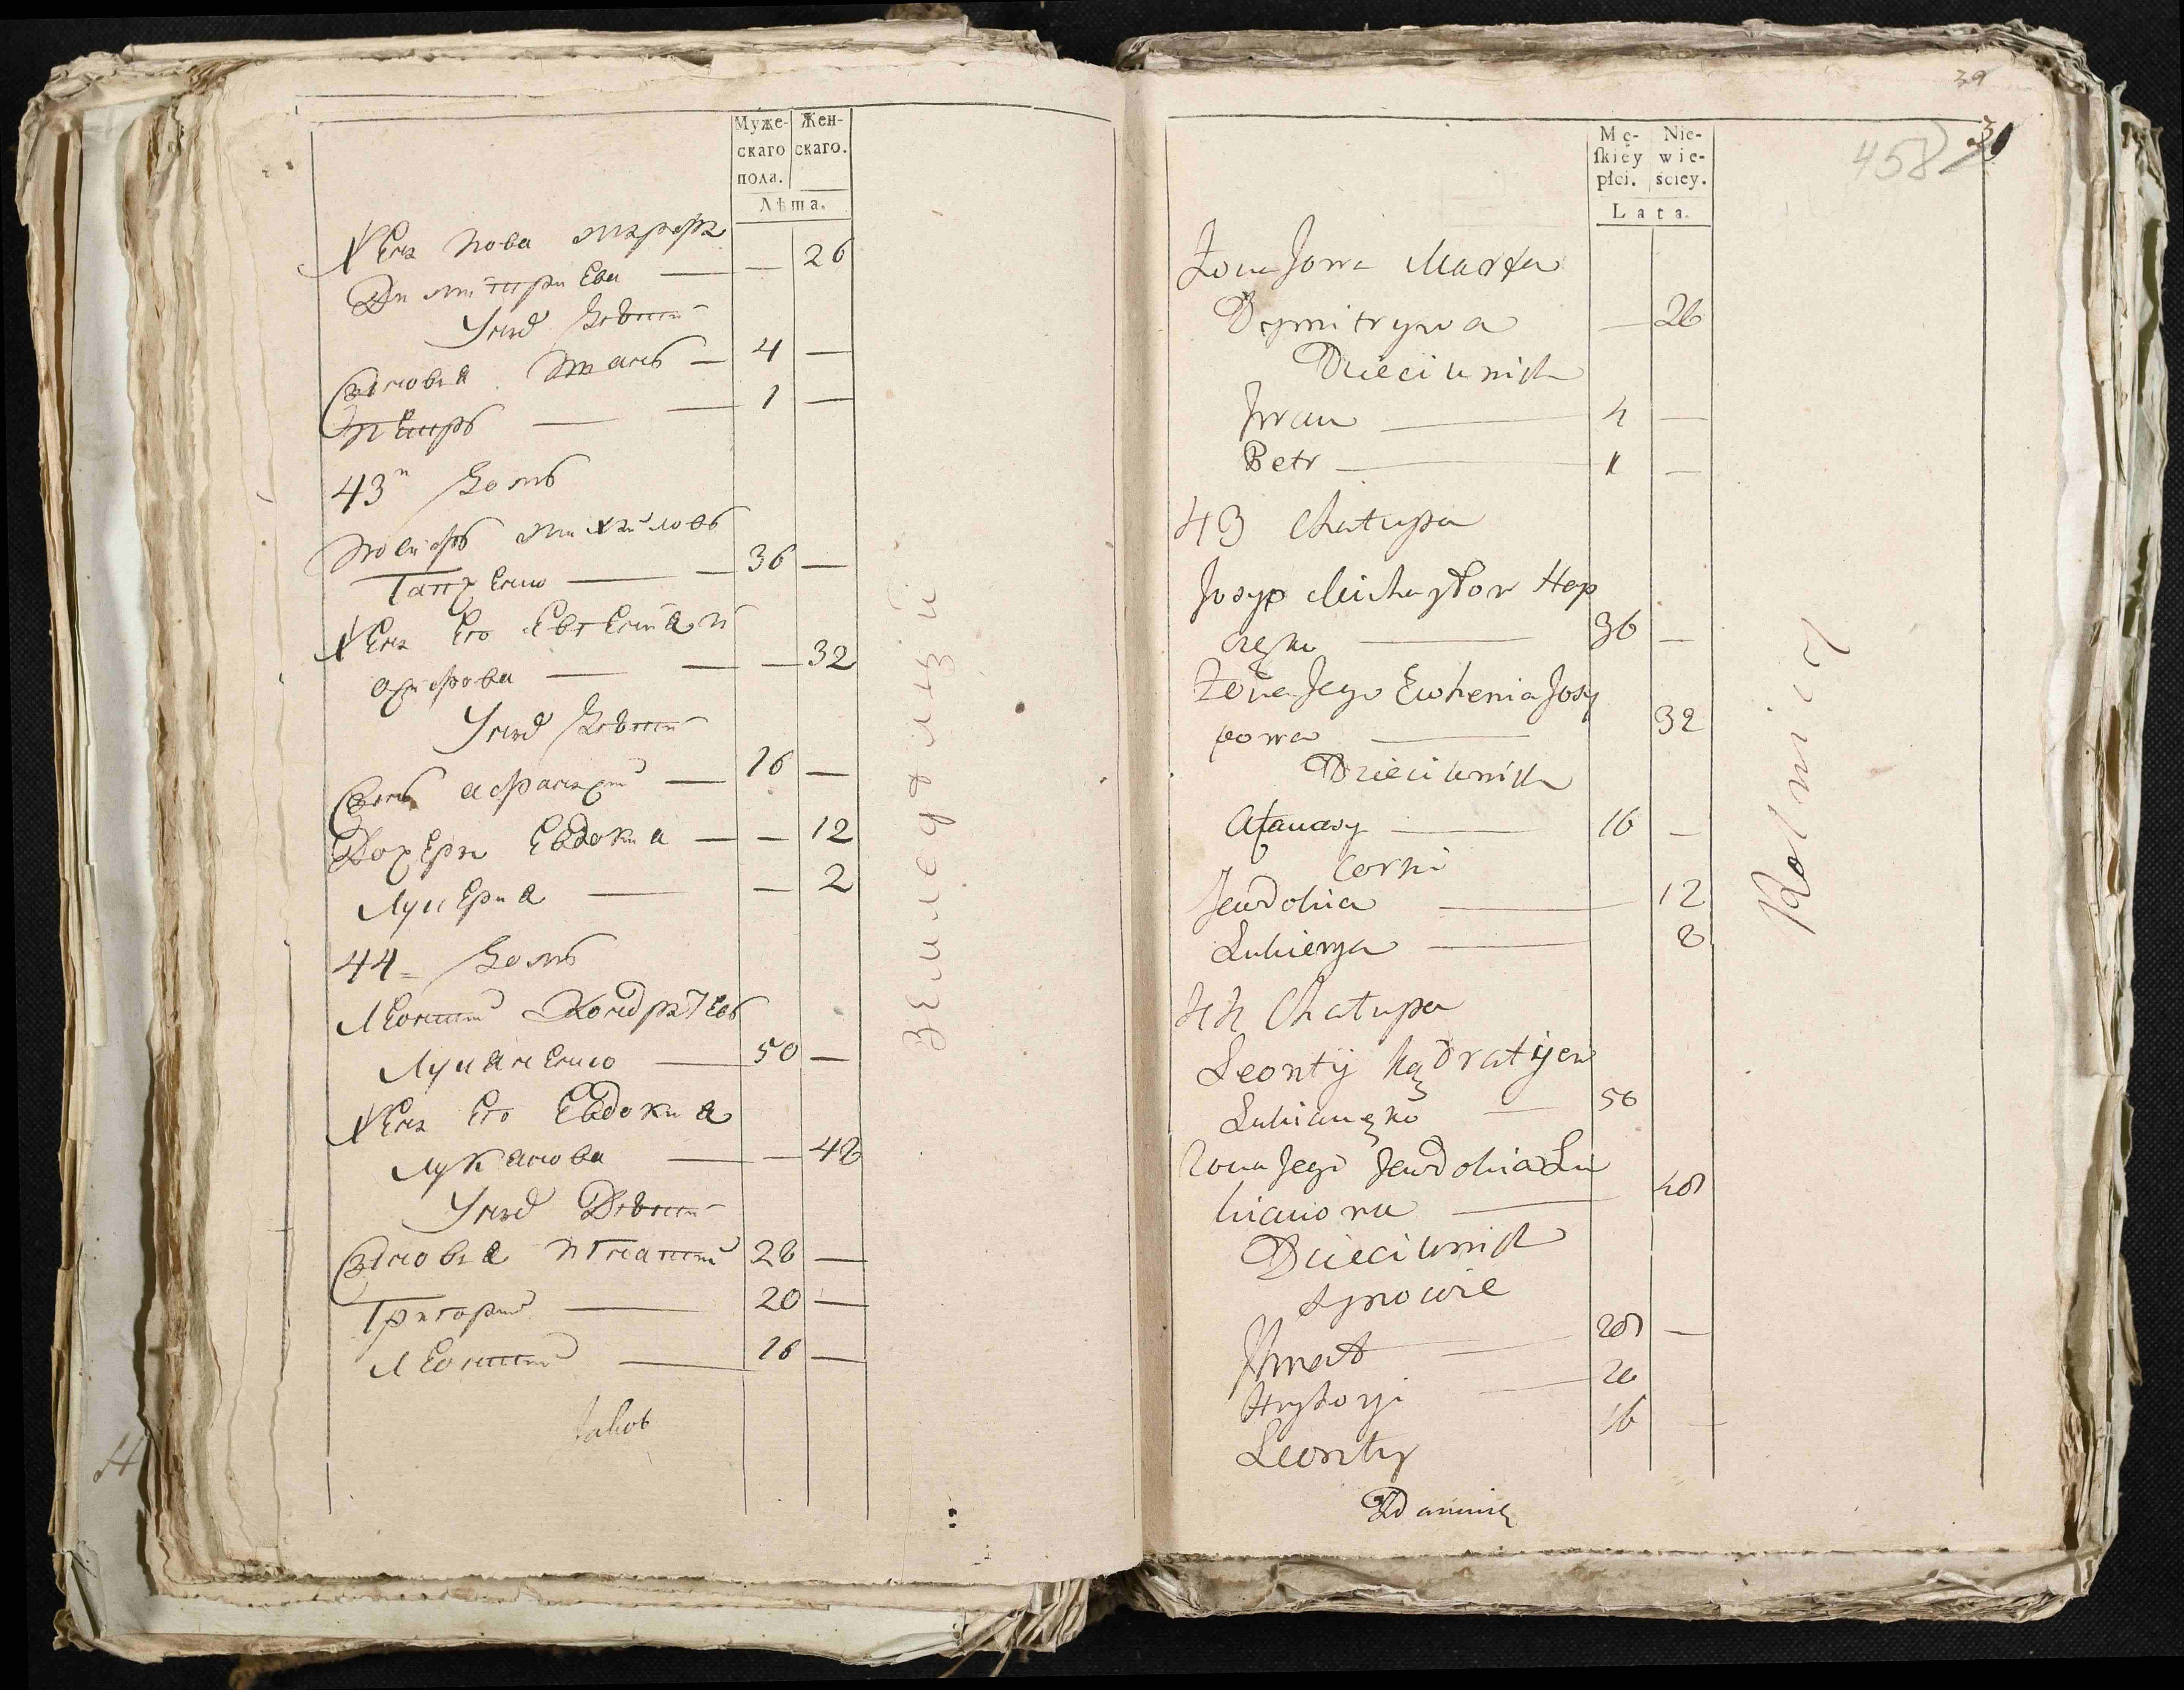 Муже-
скаго
пола.
Жен-
скаго.
Лѣта.
Жена Іова Марфа
Димитриева — — 26
У нихъ дѣтей
Сыновья Иванъ — 4 —
Петръ — — 1 —
43й домъ
Іосифъ Михайловъ
Гапченко — — 36 —
Жена его Евгения
— — — 32
У нихъ дѣтей
Сынъ Афанасий — 16 —
Дочери Евдокия — — 12
Лукерия — — 2
44= домъ
Леонтий Кондратьевъ
Лукяненко — 50 —
Жена его Евдокия
Лукянова — — 48
У нихъ дѣтей
Сыновья Игнатий 28 —
Григорий — 20 —
Леонтий — 16 —
Земледѣлцы
39
458
31
Mę-
ſkiey
płci.
Nie-
wie-
ściey.
Lata.
Zona Jowa Marfa
Dymitrywa — 26
Dzieci u nich
Iwan — 4 —
Petr — 1 —
43 Chałupa
Josyp Michayłow Hap
częko — 36 —
Zona Jego Ewhenia Josy
powa — 32
Dzieci u nich
Afanasy — 16 —
Corki
Jewdokia — 12
Lukierya — 2
44 Chałupa
Leontij Kądratijew
Lukianęko — 50
Zona Jego Jewdokia Lu
kianowa — 48
Dzieci u nich
Synowie
Ihnat — 28 —
Hryhoryi — 20
Leonty 16 —
Rolnicy